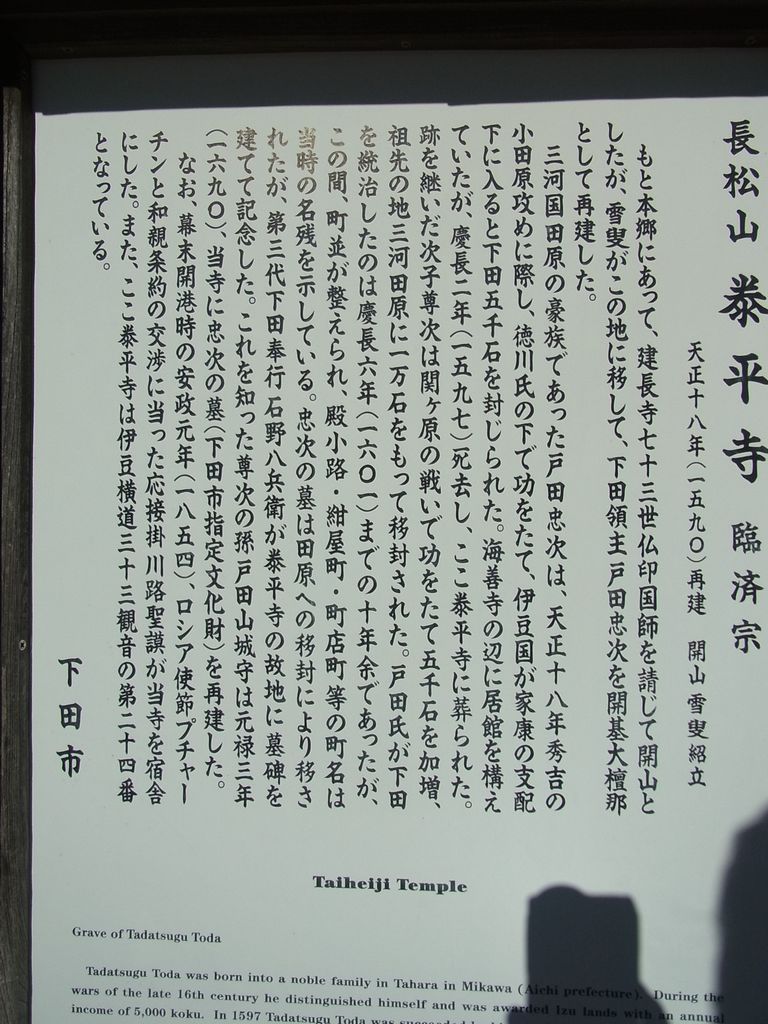 長松山 泰平寺 臨済宗
天正十八年(一五九〇)再建 開山 雪叟紹立
もと本郷にあって、建長寺七十三世仏印国師を請じて開山と
したが、雪叟がこの地に移して、下田領主戸田忠次を開基大檀那
として再建した。
三河国田原の豪族であった戸田忠次は、天正十八年秀吉の
小田原攻めに際し、徳川氏の下で功をたて、伊豆国が家康の支配
下に入ると下田五千石を封じられた。海善寺の辺に居館を構え
ていたが、慶長二年(一五九七)死去し、ここ泰平寺に葬られた。
跡を継いだ次子尊次は関ヶ原の戦いで功をたて五千石を加増、
祖先の地三河田原に一万石をもって移封された。戸田氏が下田
を統治したのは慶長六年(一六〇一)までの十年余であったが、
この間、町並が整えられ、殿小路・紺屋町・町店町等の町名は
当時の名残を示している。忠次の墓は田原への移封により移さ
れたが、第三代下田奉行石野八兵衛が泰平寺の故地に墓碑を
建てて記念した。これを知った尊次の孫戸田山城守は元禄三年
(一六九〇)、当寺に忠次の墓(下田市指定文化財)を再建した。
なお、幕末開港時の安政元年(一八五四)、ロシア使節プチャー
チンと和親条約の交渉に当った応接掛川路聖謨が当寺を宿舎
にした。また、ここ泰平寺は伊豆横道三十三観音の第二十四番
となっている。
下田市
Taiheiji Temple
Grave of Tadatsugu Toda
Tadatsugu Toda was born into a noble family in Tahara in Mikawa (Aichi prefecture). During the
wars of the late 16th century he distinguished himself and was awarded Izu lands with an annual
income of 5,000 koku. In 1597 Tadatsugu Toda was succeeded